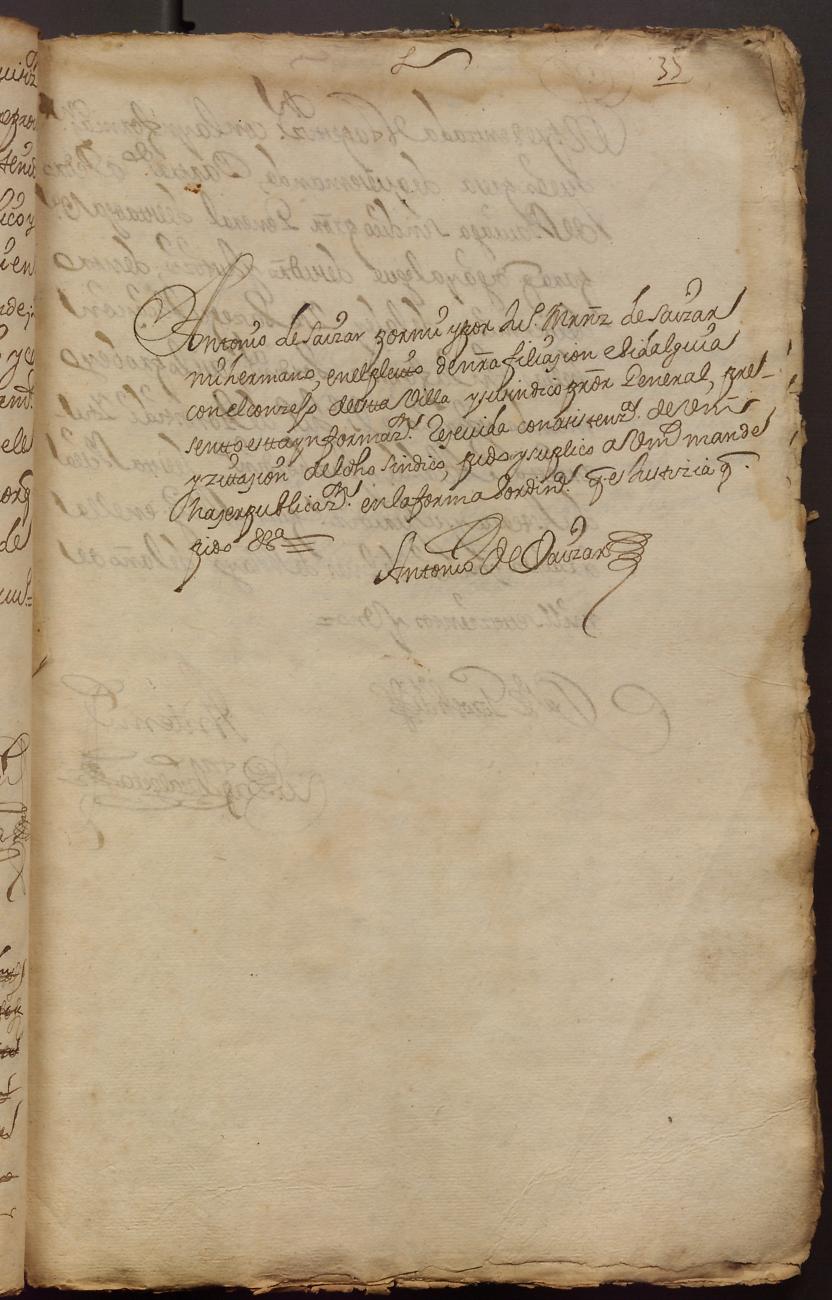 35
Antonio de Saizar por mi y por de S. Mrñz de Saizar
mi hermano, en el pleito de nrã filiasion e hidalguia
con el conzejo desta Villa y su sindico prõr General, pre-
sentto estta ynformazn. Rezeuida con asistenzª. de Vm
y zitasion del dho sindico, pido y suplico a Vm mande
hazer publicazn. en la forma hordinª. q. es Justizia q.
pido &ª
Antonio de Saizar